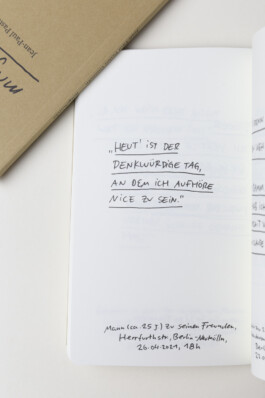 Jean-Paul
„HEUT' IST DER
DENKWÜRDIGE TAG,
AN DEM ICH AUFHÖRE
NICE ZU SEIN."
Mann (ca. 25 J) zu seinen Freunden,
Herrfurthstr., Berlin-Neukölln,
26.04.2021, 18h